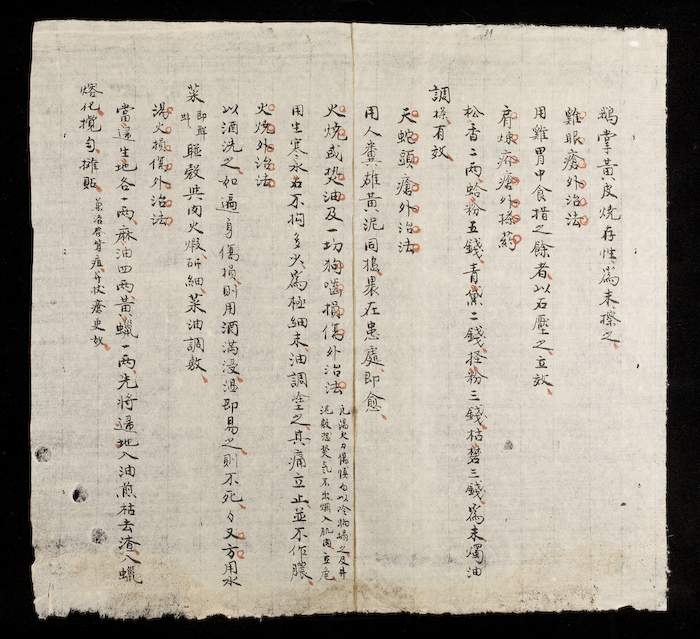 31
鵝掌黃皮燒存性為末搽之
雞眼瘡外治法
用雞胃中食揩之餘者以石壓之立效
肩煉疥瘡外搽葯
松香二兩蛤粉五錢青黛二錢銓粉三錢枯礬三錢為末燭油
調搽有效
天蛇頭瘡外治法
用人糞雄黃泥同搗裹在患處即愈
火燒或燙油及一切狗嚙損傷外治法
凡湯火刀傷慎勿以冷物塌之及井
泥敷恐熱气不出爛入肌肉立危
用生寒水石不拘多少為極細末油調塗之其痛立止並不作膿
火燒外治法
以酒洗之如遍身傷損則用酒滿浸溫即易之則不死〻又方用水
菜 即蚌 殼與肉火煅研細菜油調敷
湯火損傷外治法
當歸生地各一兩麻油四兩黃蠟一兩先將歸地入油煎枯去渣入蠟
熔化攪匀攤貼 兼治發背疽疔杖瘡更效